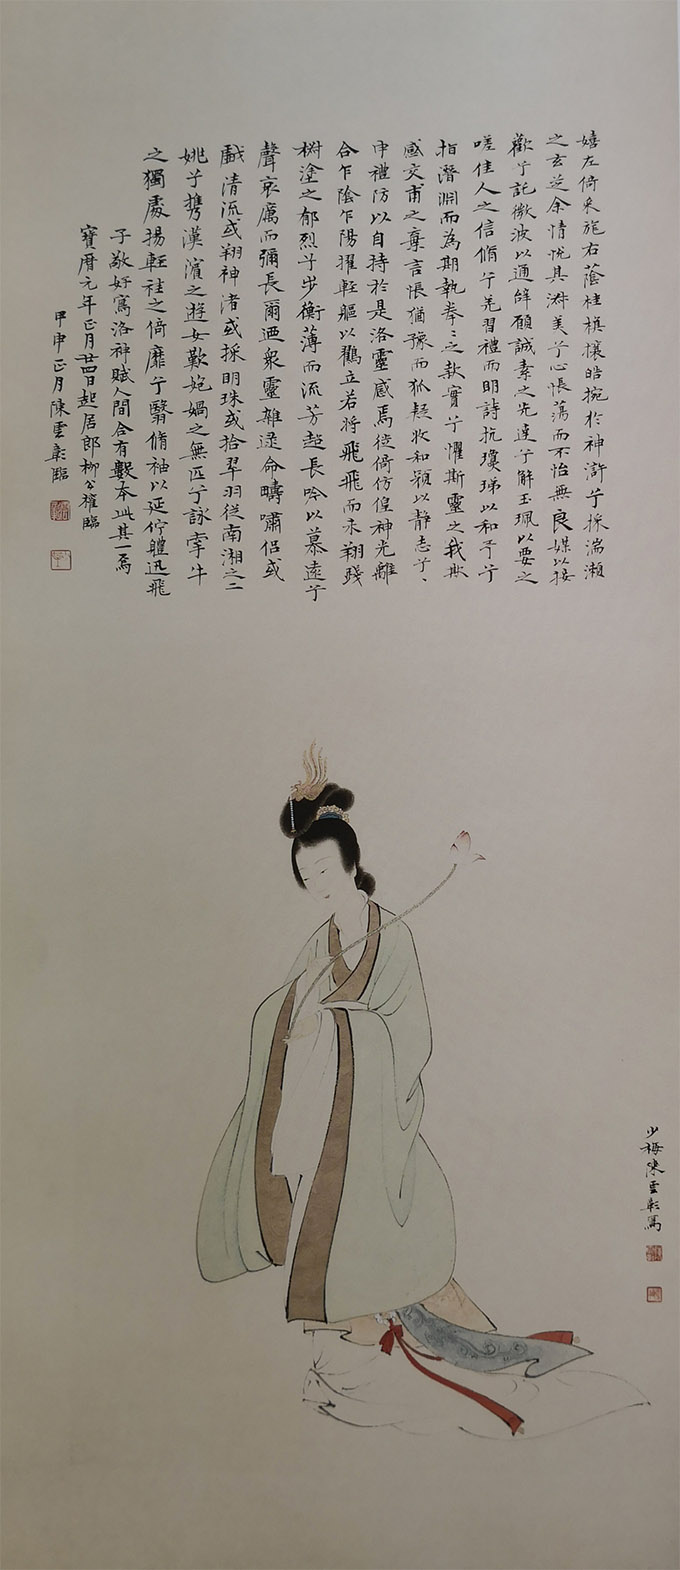 嬉左倚采旄右蔭桂旗攘皓捥於神滸兮採湍瀨
之玄芝余情悅其淑美兮心悵蕩而不怡無良媒以接
歡兮託微波以通辭願誠素之先達兮解玉珮以要之
嗟佳人之信脩兮羌習禮而明詩抗瓊珶以和予兮
指潛淵而為期執拳〻之款實兮懼斯靈之我欺
感交甫之棄言悵猶豫而狐疑收和顏以靜志兮、
申禮防以自持於是洛靈感焉徙倚仿偟神光離
合乍陰乍陽擢輕軀以鶴立若將飛飛而未翔踐
椒塗之郁烈兮步衡薄而流芳超長吟以慕遠兮
聲哀厲而彌長爾迺衆靈雜遝命疇嘯侶或
戲清流或翔神渚或採明珠或拾翠羽從南湘之二
姚兮攜漢濱之遊女歎匏媧之無匹兮詠牽牛
之獨處揚輕袿之倚靡兮翳脩袖以延佇體迅飛
子敬好寫洛神賦人間合有數本此其一焉
寶曆元年正月廿四日起居郎柳公權臨
甲申正月陳雲彰臨
少梅陳雲彰寫